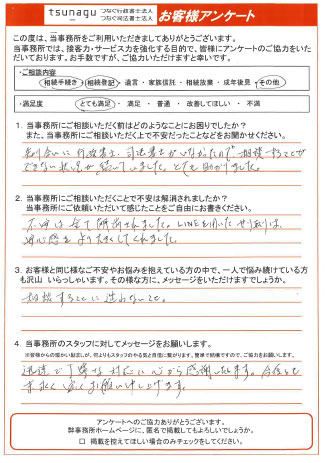 tsunagu つなぐ行政書士法人
つなぐ司法書士法人 お客様アンケート
この度は、当事務所をご利用いただきましてありがとうございます。
当事務所では、接客力・サービス力を強化する目的で、皆様にアンケートのご協力をいた
だいております。お手数ですが、ご協力いただけますと幸いです。
・ご相談内容
相続手続き・相続登記・遺言・家族信託・相続放棄・成年後見・その他
・満足度 とても満足・満足・普通・改善してほしい・不満
1. 当事務所にご相談いただく前はどのようなことにお困りでしたか?
また、当事務所にご相談いただく上で不安だったことなどをお聞かせください。
知り合いに行政書士・司法書士がいなかったので相談することが
できない状況が続いていました。とても助かりました。
2. 当事務所にご相談いただくことで不安は解消されましたか?
当事務所にご依頼いただいて感じたことをご自由にお書きください。
不安は全て解消されました。LINEを用いたやり取りは、
安心感をより大きくしてくれました。
3. お客様と同じ様なご不安やお悩みを抱えている方の中で、一人で悩み続けている方
も沢山いらっしゃいます。その様な方に、メッセージをいただけますでしょうか。
相談することに迷わないこと。
4. 当事務所のスタッフに対してメッセージをお願いします。
※皆様からの暖かい励ましが、何よりもスタッフのやる気と自信に繋がります。簡単で結構ですので、ご協力をお願いします。
迅速で丁寧な対応に心から感謝いたします。今後とも
末永く宜しくお願い申し上げます。
アンケートへのご協力ありがとうございます。
弊事務所ホームページに、匿名で掲載してもよろしいでしょうか。
□ 掲載を控えてほしい場合のみチェックをしてください。